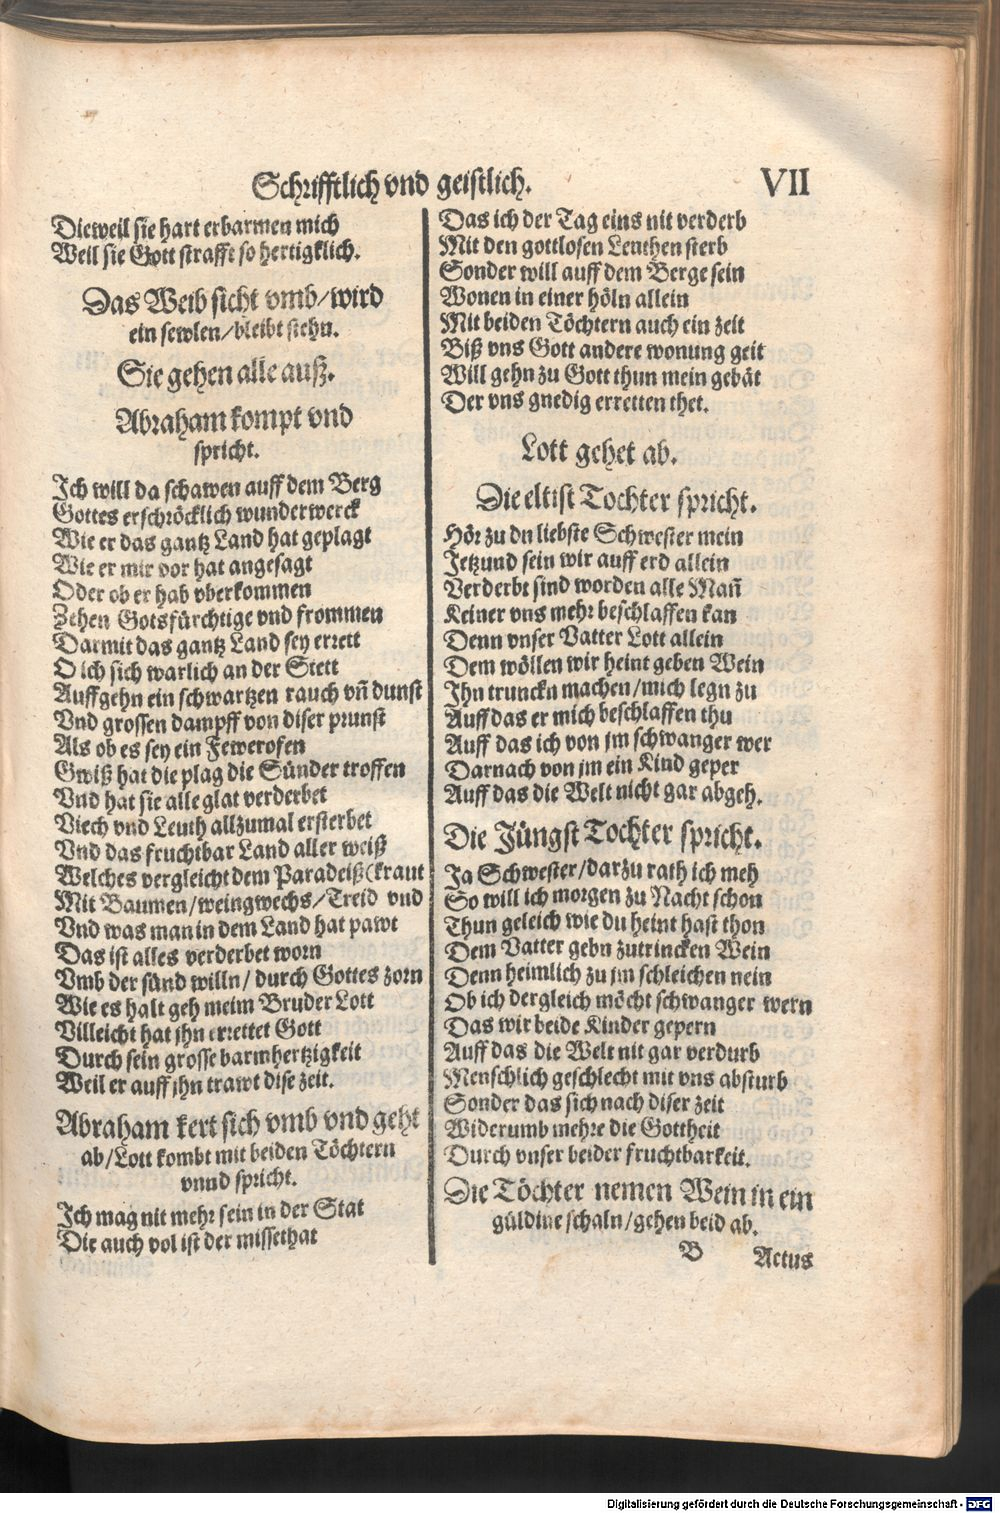 Schrifftlich vnd geistlich. VII
Dieweil sie hart erbarmen mich
Weil sie Gott strafft so hertigklich.
Das Weib sicht vmb/wird
ein sewlen/bleibt stehn.
Sie gehen alle auß.
Abraham kompt vnd
spricht.
Ich will da schawen auff dem Berg
Gottes erschröcklich wunderwerck
Wie er das gantz Land hat geplagt
Wie er mir vor hat angesagt
Oder ob er hab vberkommen
Zehen Gotsfürchtige vnd frommen
Darmit das gantz Land sey errett
O ich sich warlich an der Stett
Auffgehn ein schwartzen rauch vñ dunst
Vnd grossen dampff von diser prunst
Als ob es sey ein Fewerofen
Gwiß hat die plag die Sünder troffen
Vnd hat sie alle glat verderbet
Viech vnd Leuth allzumal ersterbet
Vnd das fruchtbar Land aller weiß
Welches vergleicht dem Paradeiß (kraut
Mit Baumen/weingwechs/Treid vnd
Vnd was man in dem Land hat pawt
Das ist alles verderbet worn
Vmb der sünd willn/ durch Gottes zorn
Wie es halt geh meim Bruder Lott
Villeicht hat jhn errettet Gott
Durch sein grosse barmhertzigkeit
Weil er auff jhn trawt dise zeit.
Abraham kert sich vmb vnd geht
ab/Lott kombt mit beiden Töchtern
vnnd spricht.
Ich mag nit mehr sein in der Stat
Die auch vol ist der missethat
Das ich der Tag eins nit verderb
Mit den gottlosen Leuthen sterb
Sonder will auff dem Berge sein
Wonen in einer höln allein
Mit beiden Töchtern auch ein zeit
Biß vns Gott andere wonung geit
Will gehn zu Gott thun mein gebät
Der vns gnedig erretten thet.
Lott gehet ab.
Die eltist Tochter spricht.
Hör zu du liebste Schwester mein
Jetzund sein wir auff erd allein
Verderbt sind worden alle Mañ
Keiner vns mehr beschlaffen kan
Denn vnser Vatter Lott allein
Dem wöllen wir heint geben Wein
Ihn trunckn machen/mich legn zu
Auff das er mich beschlaffen thu
Auff das ich von jm schwanger wer
Darnach von jm ein Kind geper
Auff das die Welt nicht gar abgeh.
Die Jüngst Tochter spricht.
Ja Schwester/darzu rath ich meh
So will ich morgen zu Nacht schon
Thun geleich wie du heint hast thon
Dem Vatter gebn zutrincken Wein
Denn heimlich zu jm schleichen nein
Ob ich dergleich möcht schwanger wern
Das wir beide Kinder gepern
Auff das die Welt nit gar verdurb
Menschlich geschlecht mit vns absturb
Sonder das sich nach diser zeit
Widerumb mehre die Gottheit
Durch vnser beider fruchtbarkeit.
Die Töchter nemen Wein in ein
güldine schaln/gehen beid ab.
B Actus
Digitalisierung gefördert durch die Deutsche Forschungsgemeinschaft - DFG